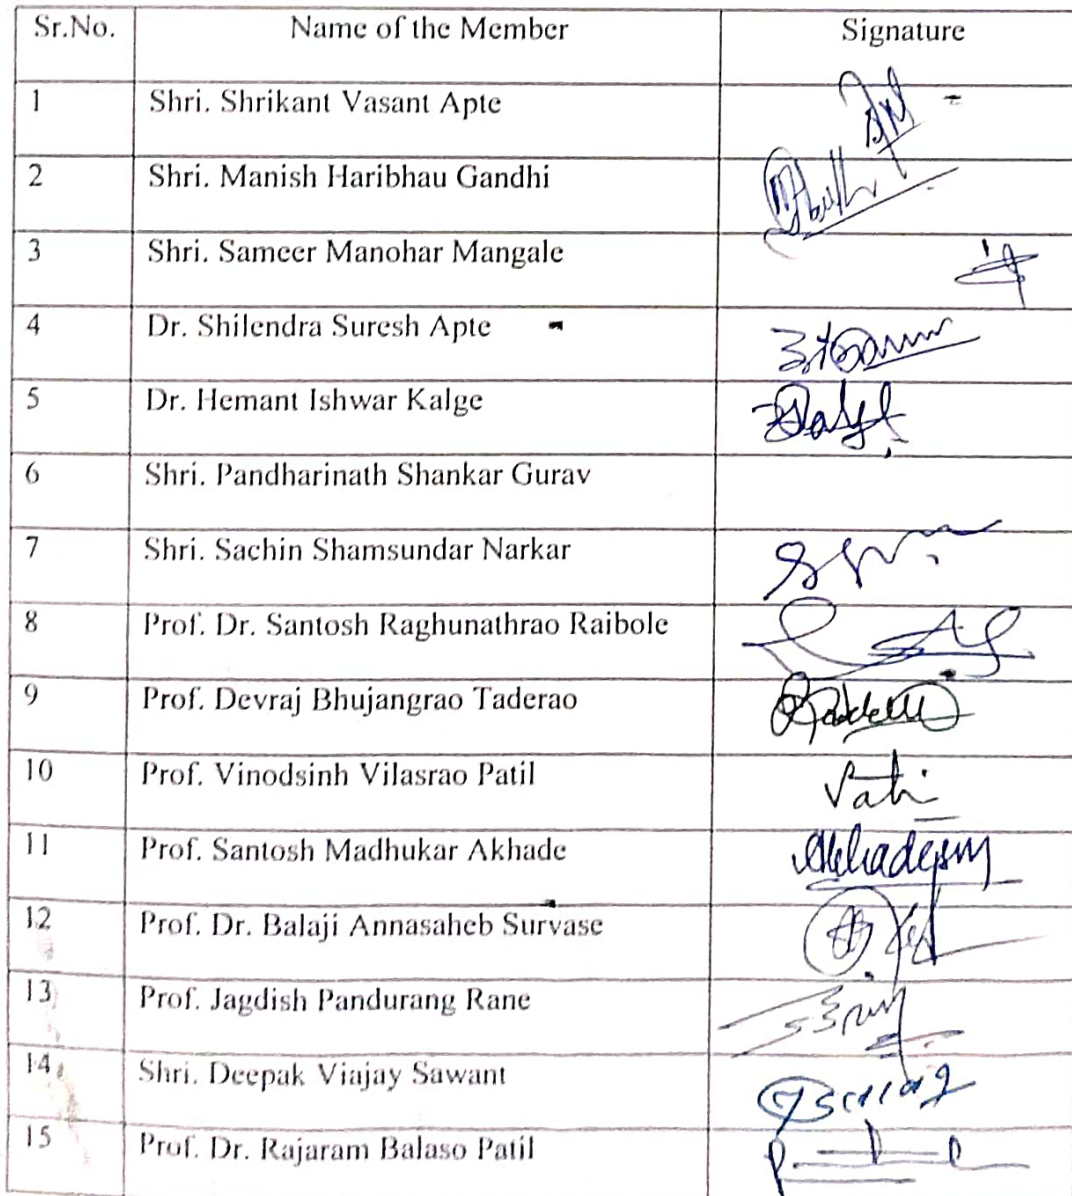 Sr.No. Name of the Member Signature
1 Shri. Shrikant Vasant Apte
2 Shri. Manish Haribhau Gandhi
3 Shri. Sameer Manohar Mangale
4 Dr. Shilendra Suresh Apte
5 Dr. Hemant Ishwar Kalge
6 Shri. Pandharinath Shankar Gurav
7 Shri. Sachin Shamsundar Narkar
8 Prof. Dr. Santosh Raghunathrao Raibole
9 Prof. Devraj Bhujangrao Taderao
10 Prof. Vinodsinh Vilasrao Patil
11 Prof. Santosh Madhukar Akhade
12 Prof. Dr. Balaji Annasaheb Survase
13 Prof. Jagdish Pandurang Rane
14 Shri. Deepak Viajay Sawant
15 Prof. Dr. Rajaram Balaso Patil